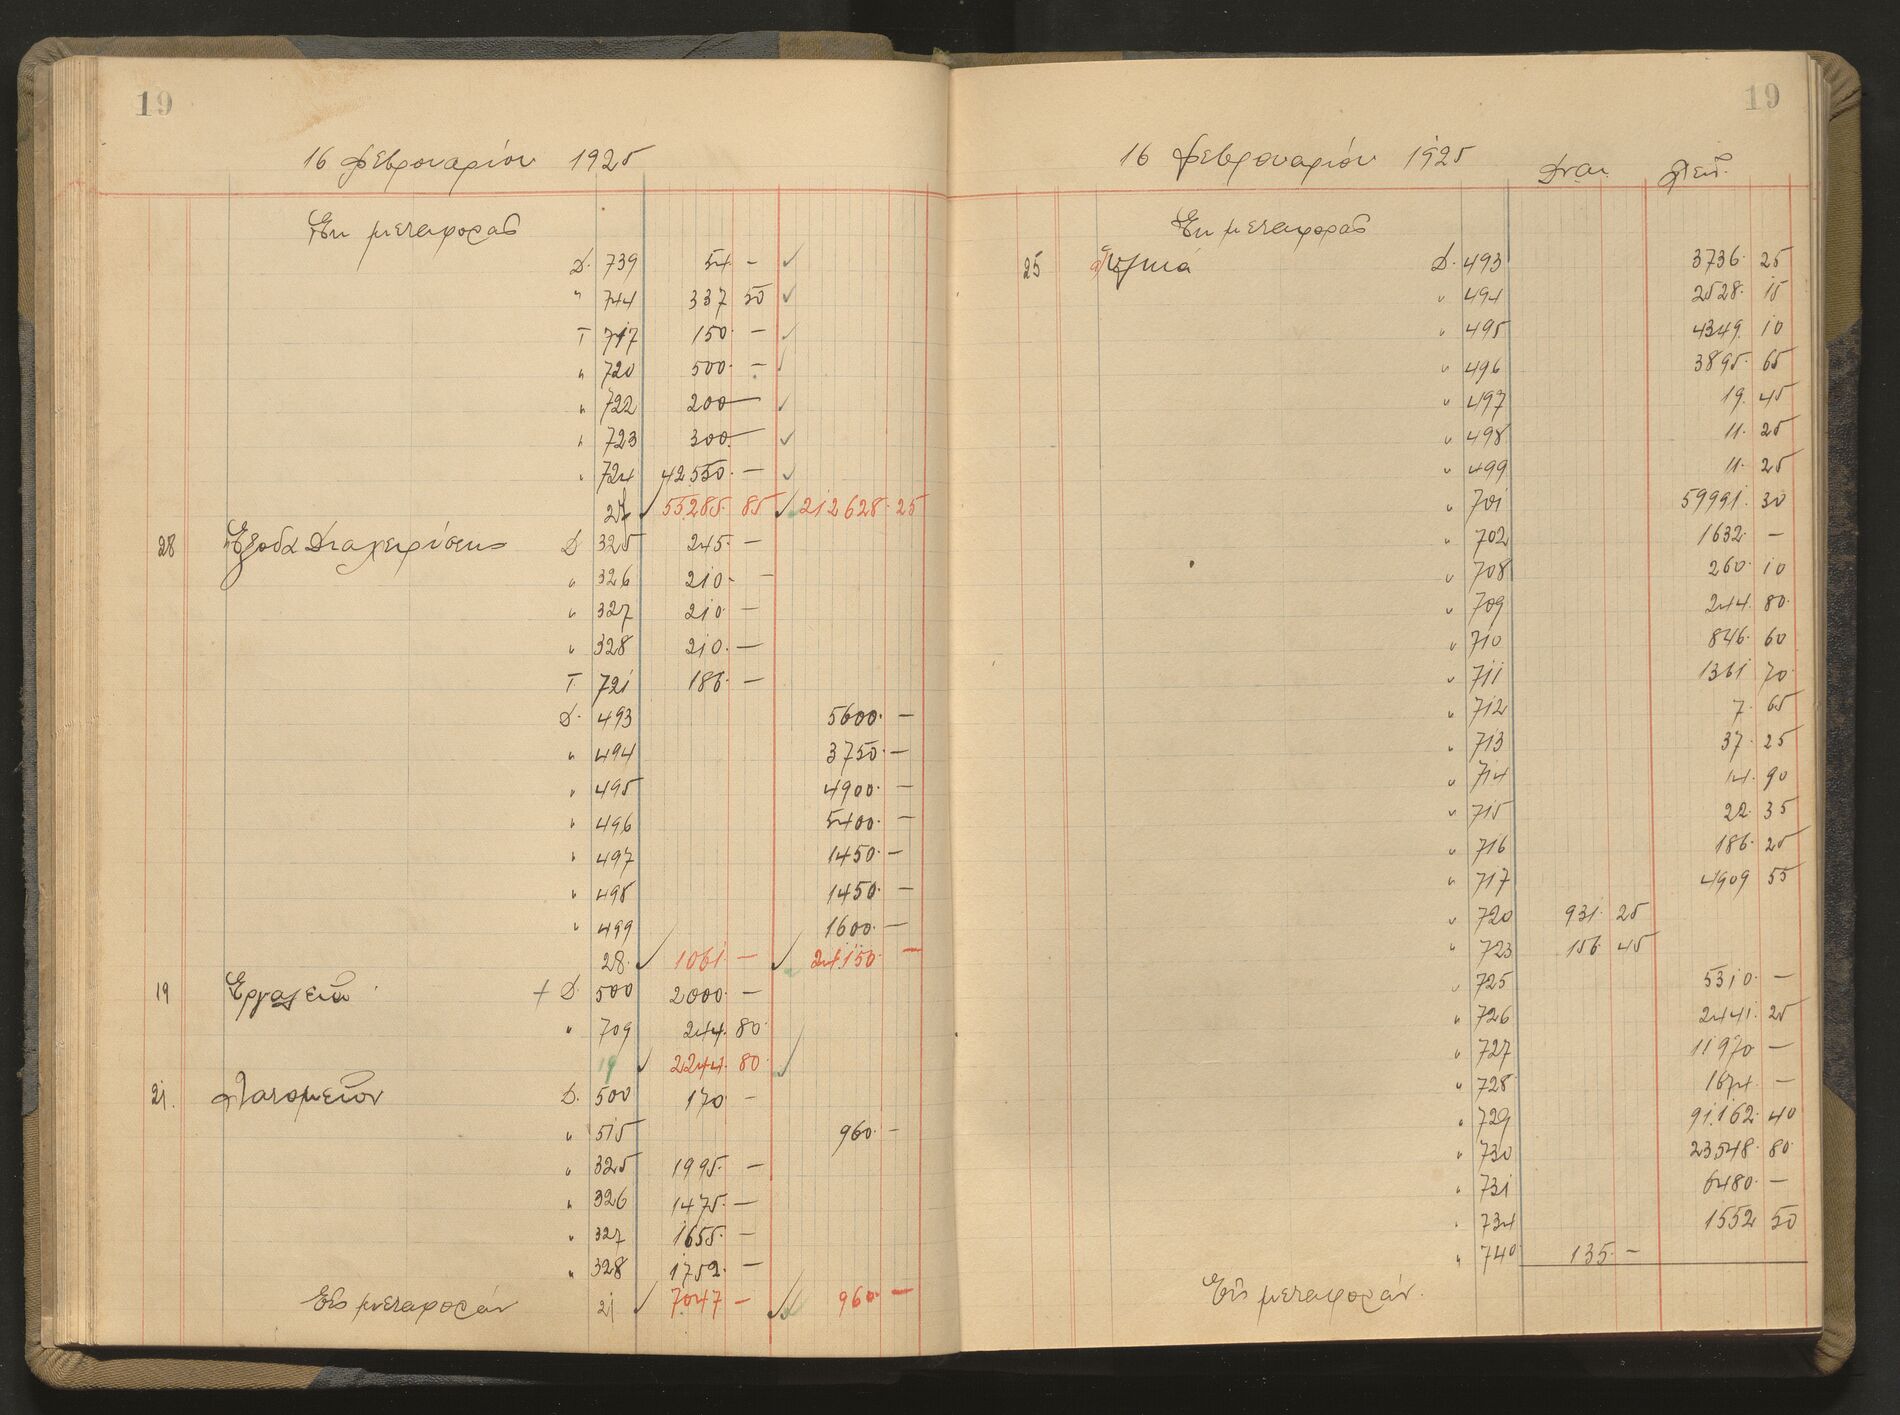 19
16 Φεβρουαρίου 1925
Ἐκ μεταφορᾶς
Δ. 739 54 — ✓
" 744 337 50 ✓
Τ 717 150. — ✓
" 720 500. — ✓
" 722 200 — ✓
" 723 300 — ✓
" 724 42550. — ✓
✓ 55285. 85 ✓ 212628. 25
28 Ἔξοδα Διαχειρίσεως Δ 325 245. —
" 326 210. —
" 327 210. —
" 328 210. —
Τ. 721 186. —
Δ. 493 5600. —
" 494 3750. —
" 495 4900. —
" 496 5400. —
" 497 1450. —
" 498 1450. —
" 499 1600. —
28. ✓ 1061 — ✓ 24150. —
19 Ἐργαλεῖα + Δ. 500 2000. —
" 709 244. 80.
19 ✓ 2244. 80. ✓
21. Λατομεῖον Δ. 500 170. —
" 515 960. —
" 325 1995. —
" 326 1475. —
" 327 1655. —
" 328 1752. —
Εἰς μεταφοράν 21 ✓ 7047 — ✓ 960. —
19
16 Φεβρουαρίου 1925 Δοῦν. Λαβ.
Ἐκ μεταφορᾶς
25 Ὑλικά Δ. 493 3736. 25
" 494 2528. 15
" 495 4349. 10
" 496 3895. 65
" 497 19. 45
" 498 11. 25
" 499 11. 25
" 701 59991. 30
" 702 1632. —
" 708 260. 10
" 709 244. 80.
" 710 846. 60
" 711 1361 70.
" 712 7. 65
" 713 37. 25
" 714 14. 90
" 715 22. 35
" 716 186. 25
" 717 4909 55
" 720 931. 25
" 723 156. 45
" 725 5310. —
" 726 2441. 25
" 727 11970 —
" 728 1674. —
" 729 91.162. 40
" 730 23548. 80.
" 731 6480. —
" 734 1552 50
" 740 135. —
Εἰς μεταφοράν.